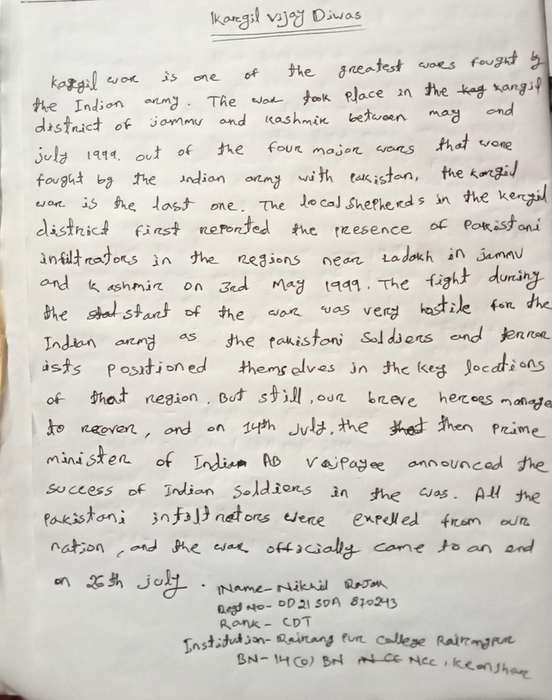 Kargil Vijay Diwas
Kargil war is one of the greatest wars fought by
the Indian army. The war took place in the kargil
district of jammu and kashmir between may and
july 1999. out of the four major wars that were
fought by the indian army with pakistan, the kargil
war is the last one. The local shepherds in the kergil
district first reported the presence of Pakistani
infiltrators in the regions near Ladakh in jammu
and kashmir on 3rd May 1999. The fight during
the start of the war was very hostile for the
Indian army as the pakistani Soldiers and terror
ists positioned themselves in the key locations
of that region. But still, our breve heroes manage
to recover, and on 14th July, the then Prime
minister of India AB Vajpayee announced the
success of Indian Soldiers in the war. All the
Pakistani infiltrators were expelled from our
nation, and the war officially came to an end
on 26th july.
Name- Nikhil Rajak
Regd No- OD21SDA 870243
Rank- CDT
Institution- Rairangpur College Rairangpur
BN- 14 (O) BN NCC, Keonjhar